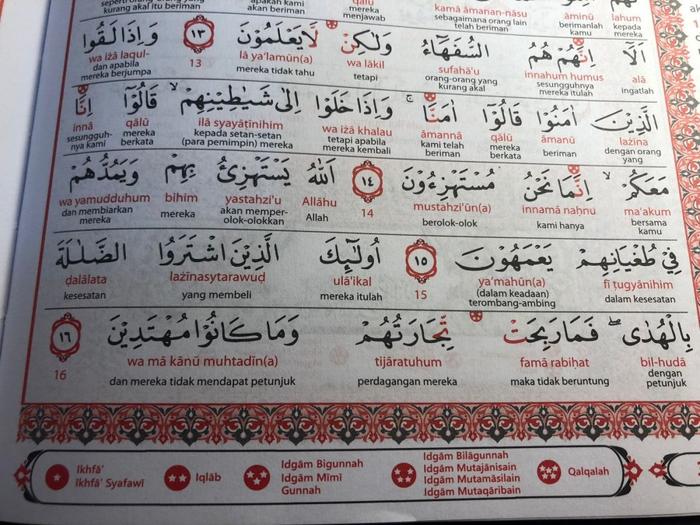 kamā āmanan-nāsu āminū lahum
sebagaimana orang lain telah beriman berimanlah kamu kepada mereka
اَلَآ اِنَّهُمْ هُمُ السُّفَهَاۤءُ وَلٰكِنْ لَّا يَعْلَمُوْنَ ١٣ وَاِذَا لَقُوا
alā innahum humus sufahā'u wa lākil lā ya'lamūn(a) 13 wa iżā laqul-
ingatlah sesungguhnya mereka itulah orang-orang yang kurang akal tetapi mereka tidak tahu dan apabila mereka berjumpa
الَّذِيْنَ اٰمَنُوْا قَالُوْٓا اٰمَنَّا ۚ وَاِذَا خَلَوْا اِلٰى شَيٰطِيْنِهِمْ ۙ قَالُوْٓا اِنَّا
lażīna āmanū qālū āmannā wa iżā khalau ilā syayāṭīnihim qālū innā
dengan orang yang beriman mereka berkata kami telah beriman tetapi apabila mereka kembali kepada setan-setan (para pemimpin) mereka mereka berkata sesungguh-nya kami
مَعَكُمْ ۙ اِنَّمَا نَحْنُ مُسْتَهْزِءُوْنَ ١٤ اَللّٰهُ يَسْتَهْزِئُ بِهِمْ وَيَمُدُّهُمْ
ma'akum innamā naḥnu mustahzi'ūn(a) 14 Allāhu yastahzi'u bihim wa yamudduhum
bersama kamu kami hanya berolok-olok Allah akan memper-olok-olokkan mereka dan membiarkan mereka
فِيْ طُغْيَانِهِمْ يَعْمَهُوْنَ ١٥ اُولٰۤىِٕكَ الَّذِيْنَ اشْتَرَوُا الضَّلٰلَةَ
fī ṭugyānihim ya'mahūn(a) 15 ulā'ikal lażīnasytarawuḍ ḍalālata
dalam kesesatan (dalam keadaan) terombang-ambing mereka itulah yang membeli kesesatan
بِالْهُدٰىۖ فَمَا رَبِحَتْ تِّجَارَتُهُمْ وَمَا كَانُوْا مُهْتَدِيْنَ ١٦
bil-hudā famā rabiḥat tijāratuhum wa mā kānū muhtadīn(a) 16
dengan petunjuk maka tidak beruntung perdagangan mereka dan mereka tidak mendapat petunjuk
Ikhfā'
Ikhfā' Syafawī
Iqlāb
Idgām Bigunnah
Idgām Mīmī
Gunnah
Idgām Bilāgunnah
Idgām Mutajānisain
Idgām Mutamāsilain
Idgām Mutaqāribain
Qalqalah